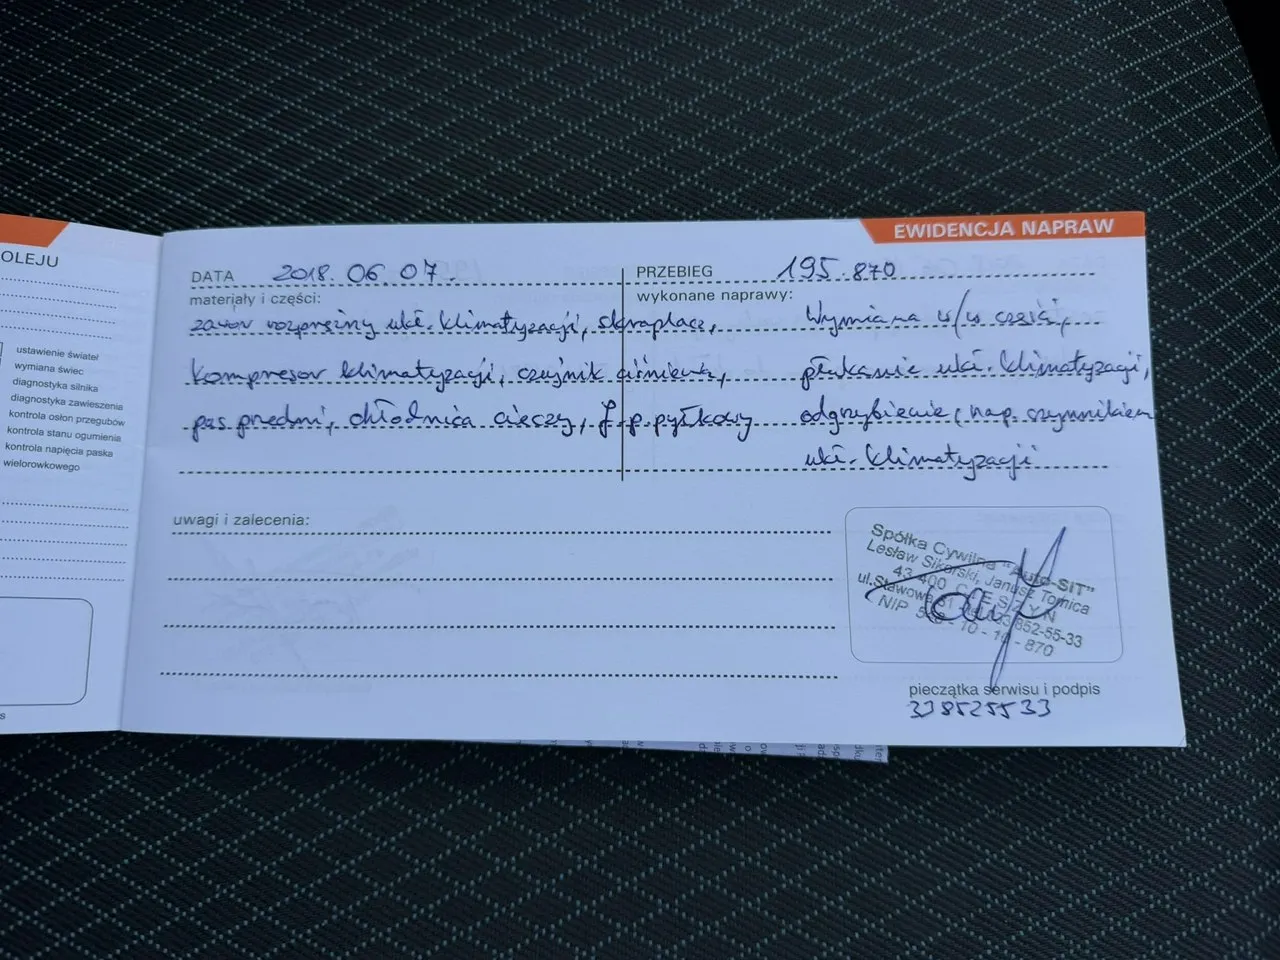 OLEJU
ustawienie świateł
wymiana świec
diagnostyka silnika
diagnostyka zawieszenia
kontrola osłon przegubów
kontrola stanu ogumienia
kontrola napięcia paska
wielorowkowego
EWIDENCJA NAPRAW
DATA 2018.06.07.
PRZEBIEG 195.870
materiały i części:
zawór rozprężny ukł. klimatyzacji, skraplacz,
kompresor klimatyzacji, czujnik ciśnienia,
pas przedni, chłodnica cieczy, f. p. pyłkowy
wykonane naprawy:
Wymiana w/w części,
płukanie ukł. klimatyzacji,
odgrzybienie, nap. czynnikiem
ukł. klimatyzacji
uwagi i zalecenia:
Spółka Cywilna "Auto-SIT"
Lesław Sikorski, Janusz Tomica
43-400 CIESZYN
ul. Stawowa 852-55-33
NIP 10 - 870
pieczątka serwisu i podpis
338525533